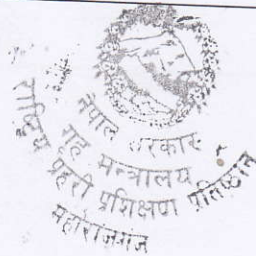 नेपाल सरकार
गृह मन्त्रालय
राष्ट्रिय प्रहरी प्रशिक्षण प्रतिष्ठान
महाराजगंज